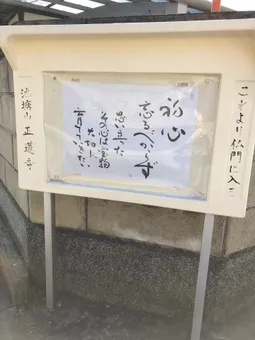 ここより仏門に入る
初心
忘るべからず
思い立った
その心は宝物
大切に
育てていきたい
正蓮寺